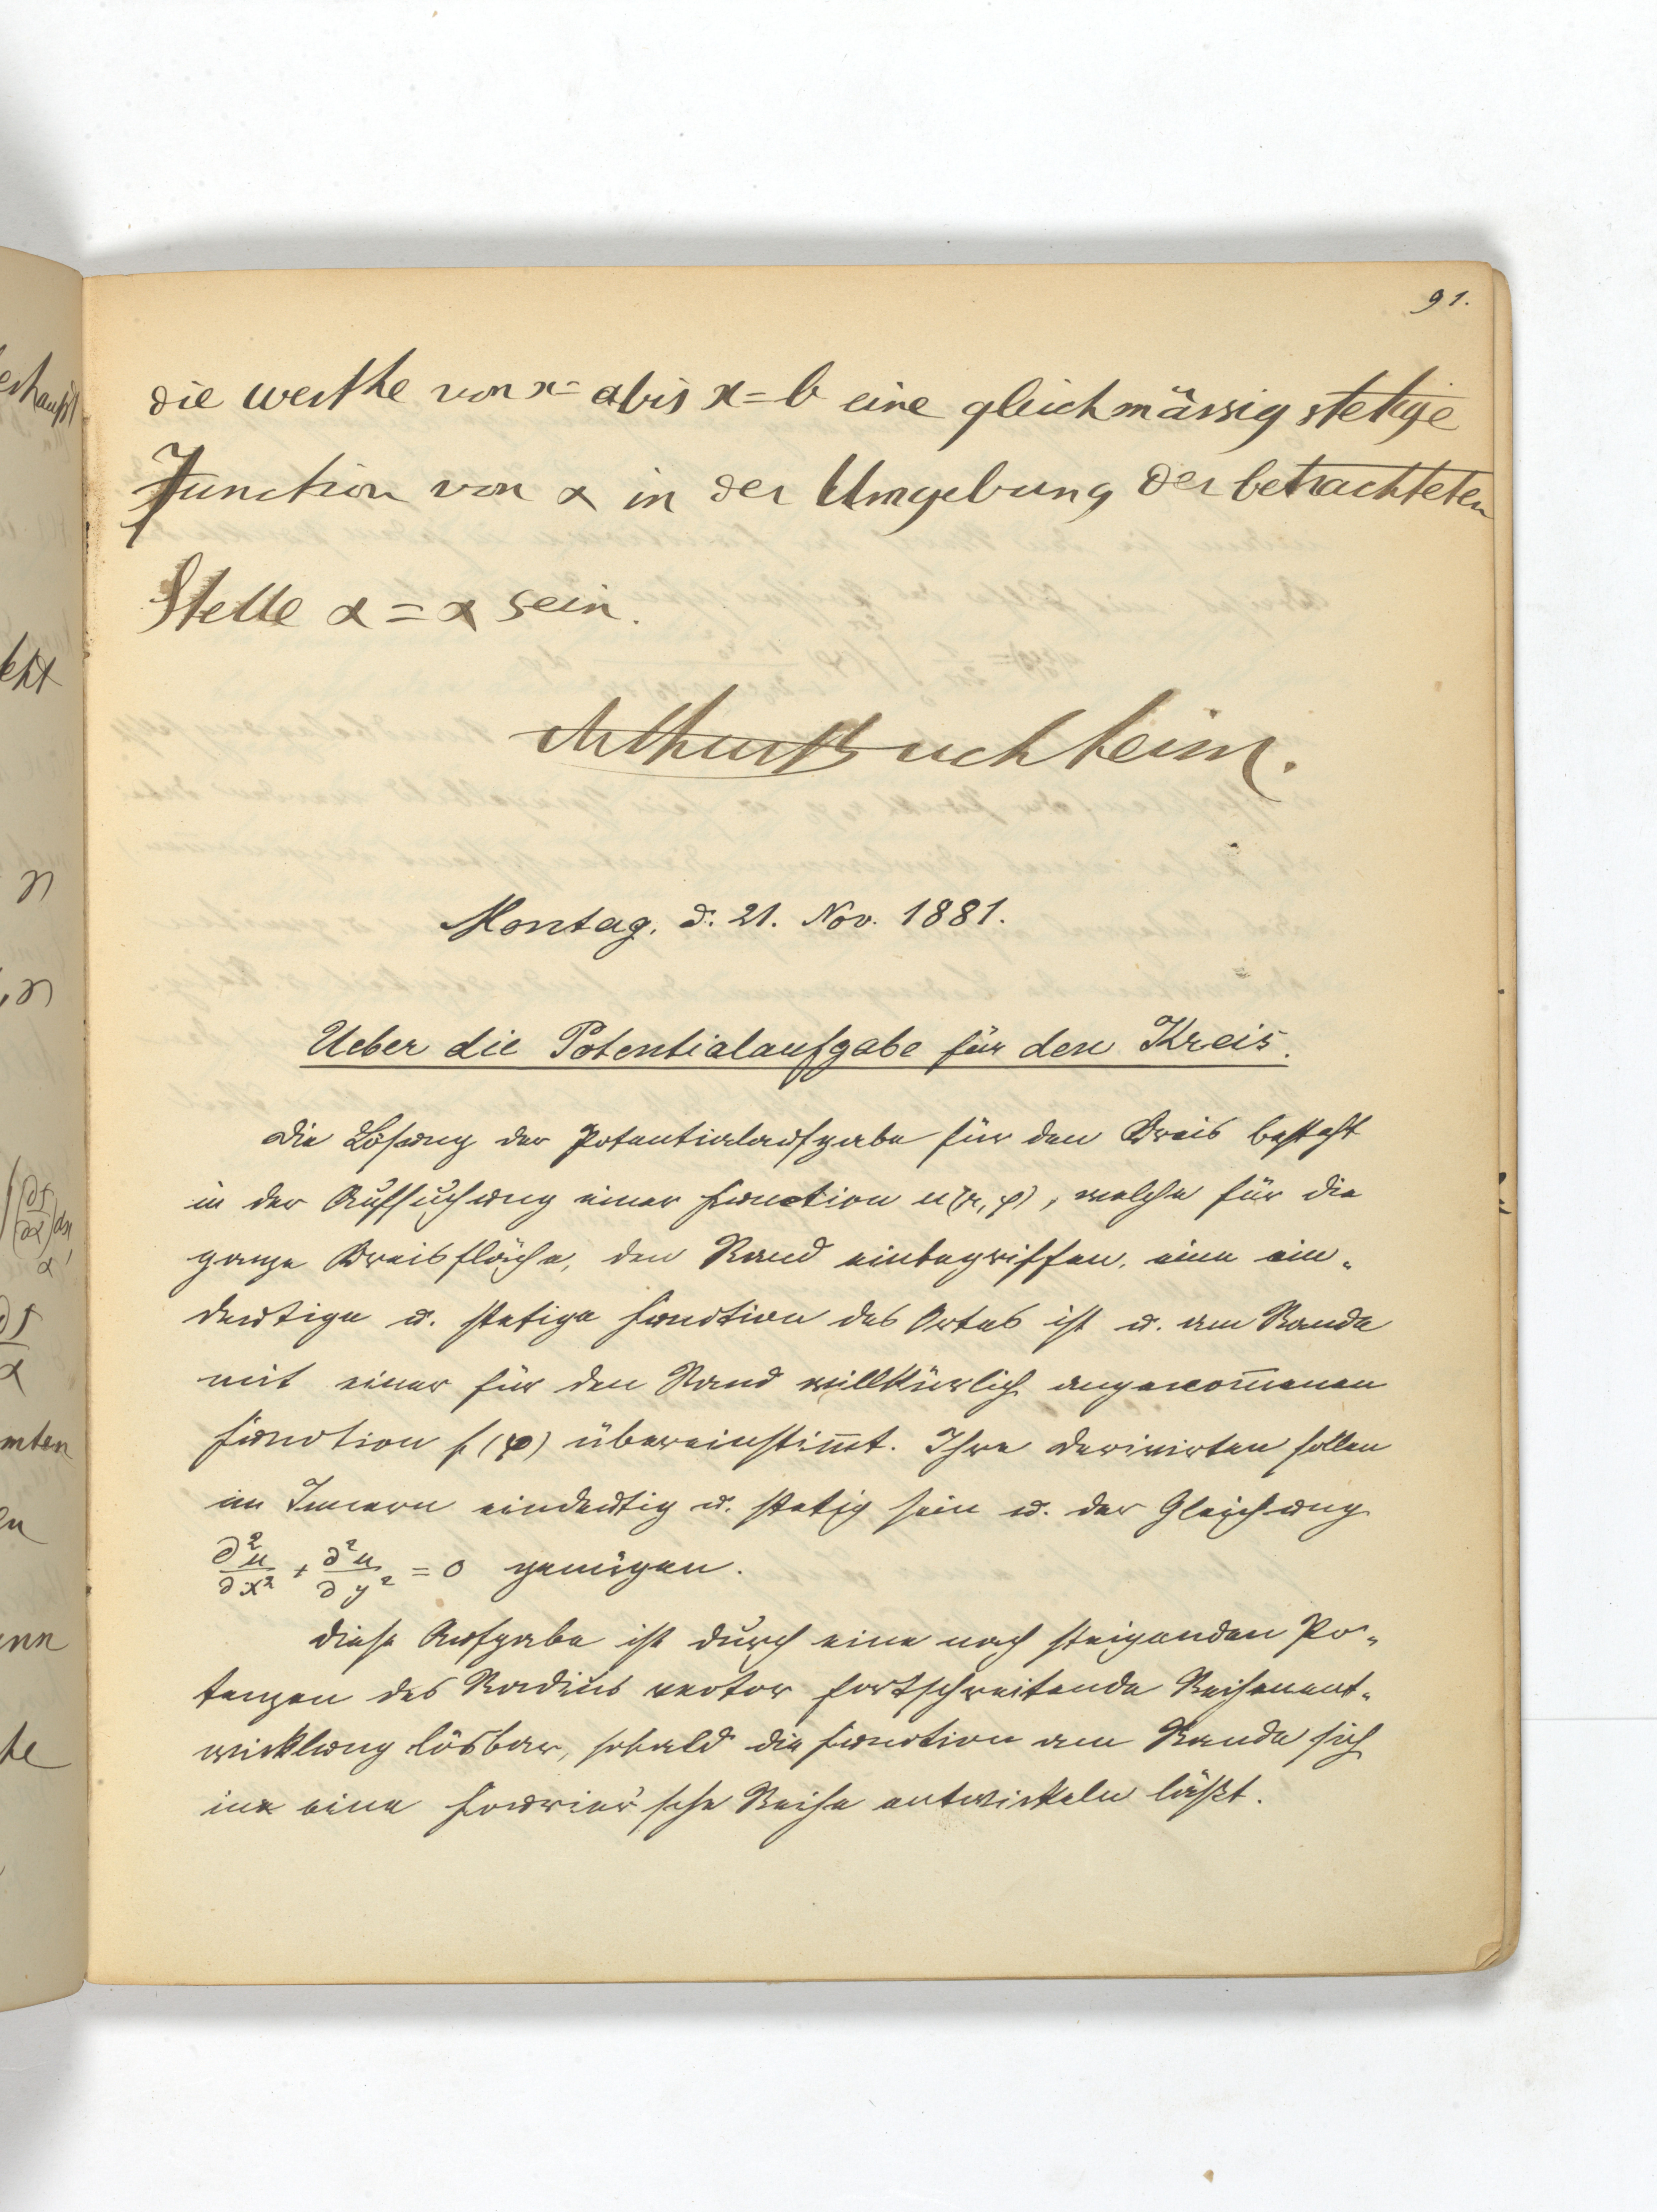 91.
die werthe von x = a bis x = b eine gleichmässig stetige
Function von α in der Umgebung der betrachteten
Stelle α = α sein.
Arthur Buchheim.
Montag, d. 21. Nov. 1881.
Ueber die Potentialaufgabe für den Kreis.
Die Lösung der Potentialaufgabe für den Kreis besteht
in der Aufsuchung einer Function u(r,φ), welche für die
ganze Kreisfläche, den Rand einbegriffen, eine ein-
deutige u. stetige Function des Ortes ist u. am Rande
mit einer für den Rand willkürlich angenom̅enen
Function f(φ) übereinstim̅t. Ihre Derivirten sollen
im Innern eindeutig u. stetig sein u. der Gleichung
∂²u/∂x² + ∂²u/∂y² = 0 genügen.
Diese Aufgabe ist durch eine nach steigenden Po-
tenzen des Radius vector fortschreitende Reihenent-
wicklung lösbar, sobald die Function am Rande sich
in eine Fourier'sche Reihe entwickeln läßt.